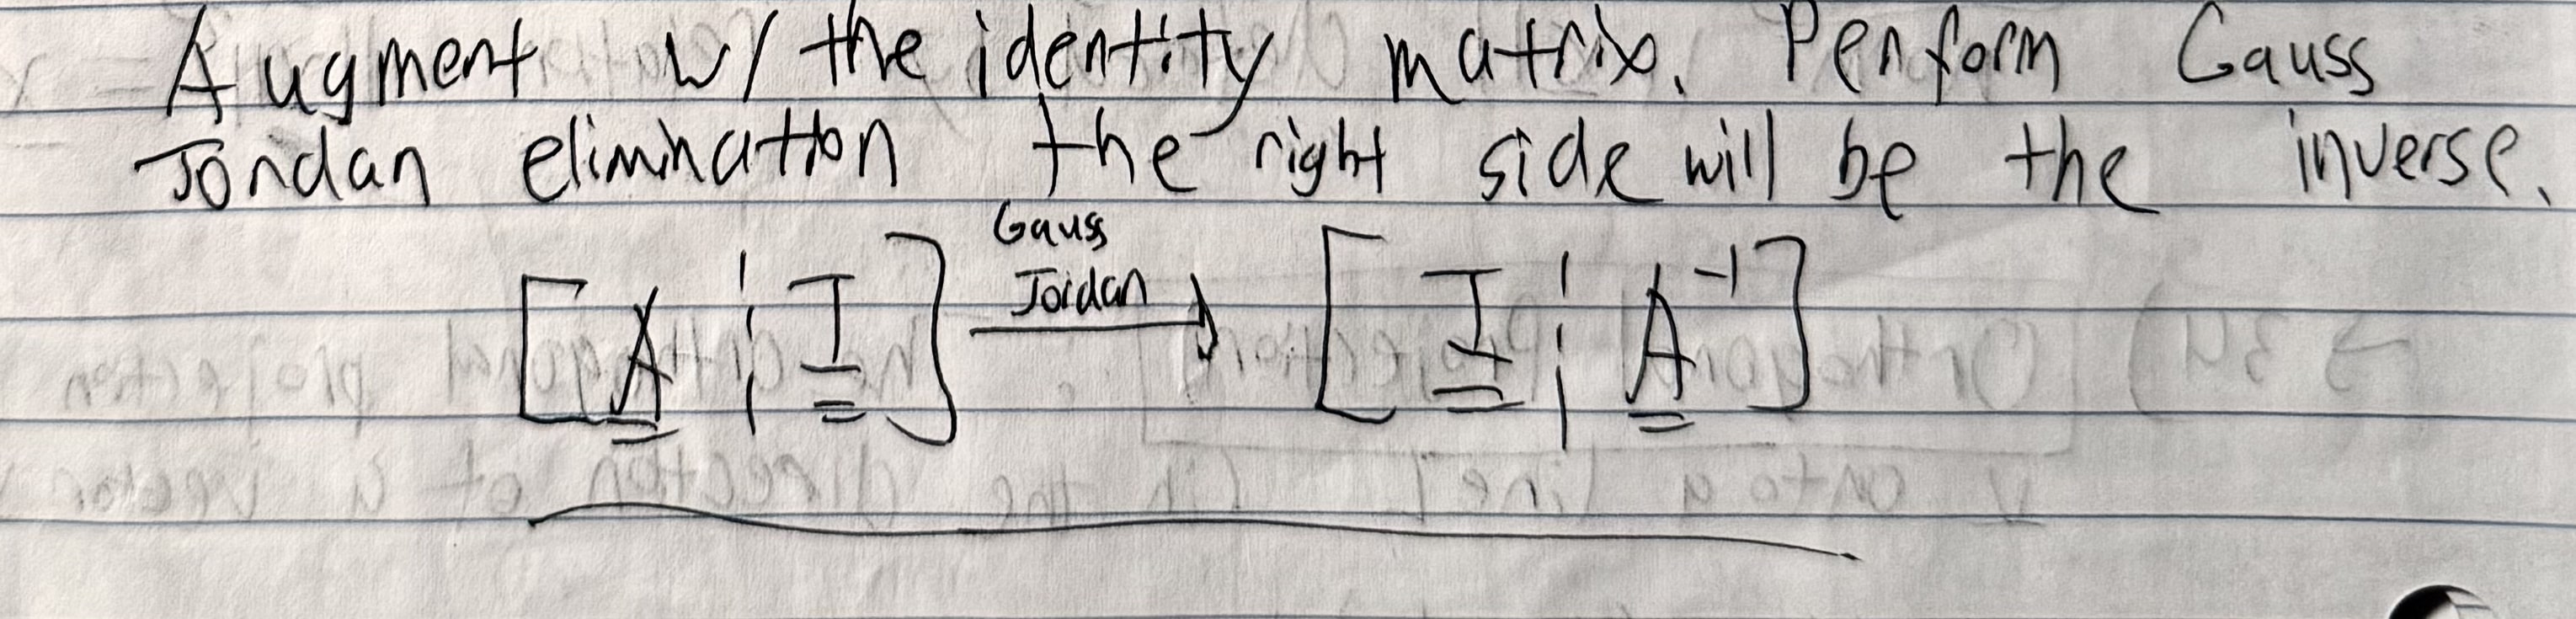 Augment w/ the identity matrix. Perform Gauss
Jordan elimination the right side will be the inverse.
[A ¦ I] Gauss Jordan → [I ¦ A⁻¹]